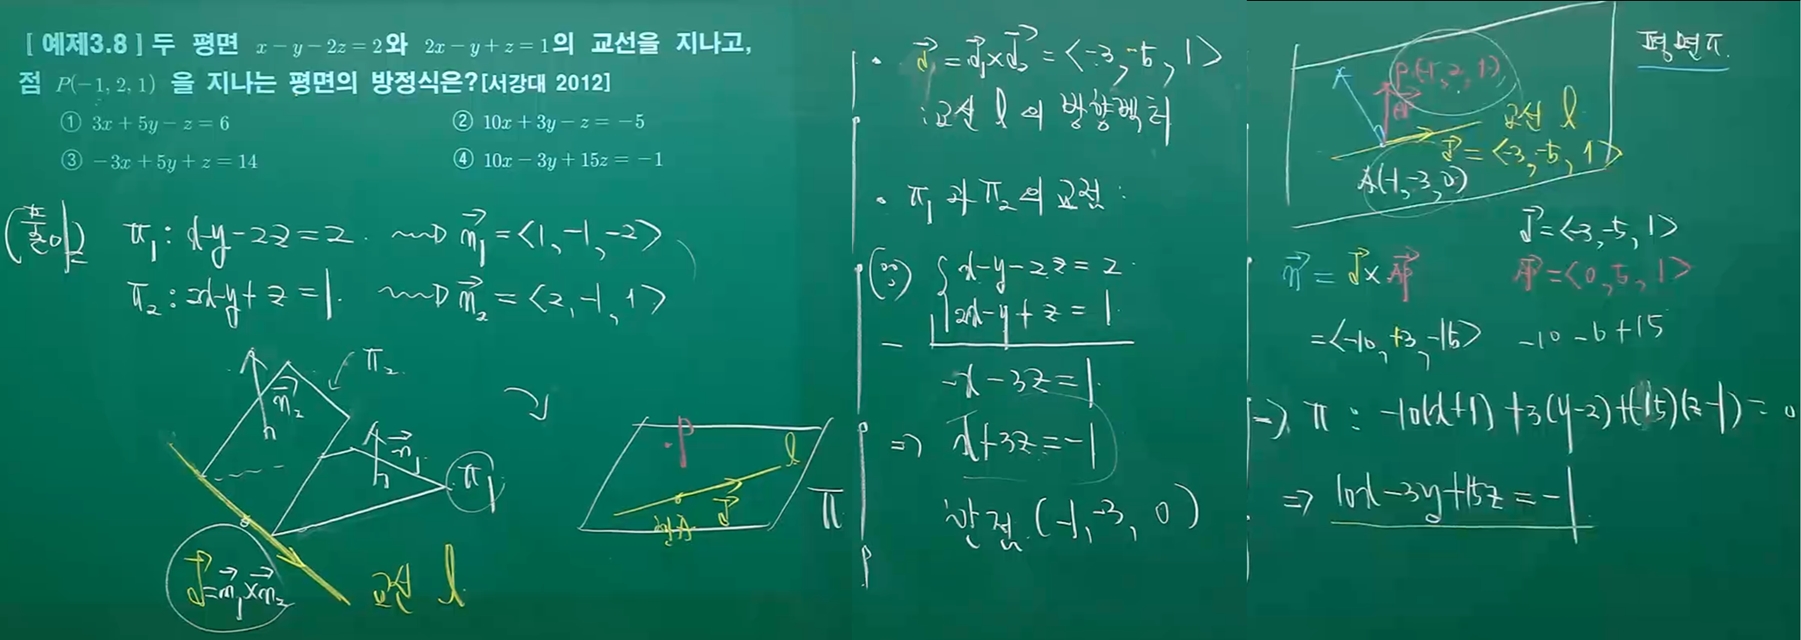 [ 예제3.8 ] 두 평면 x − y − 2z = 2와 2x − y + z = 1의 교선을 지나고,
점 P(−1, 2, 1) 을 지나는 평면의 방정식은?[서강대 2012]
① 3x + 5y − z = 6
② 10x + 3y − z = −5
③ −3x + 5y + z = 14
④ 10x − 3y + 15z = −1
(풀이)
π₁ : x−y−2z = 2 ⟿ n₁ = <1, −1, −2>
π₂ : 2x−y+z = 1 ⟿ n₂ = <2, −1, 1>
π₂
n₂
n₁
π₁
d = n₁×n₂
교선 l
P
l
d
한점
π
· d = × = <−3, −5, 1>
: 교선 l 의 방향벡터
· π₁ 과 π₂ 의 교점 :
x−y−2z = 2
2x−y+z = 1
−
−x−3z = 1
⇒ x+3z = −1
한점 (−1, −3, 0)
평면 π.
P(−1, 2, 1)
AP
교선 l
d = <−3, −5, 1>
A(−1, −3, 0)
d = <−3, −5, 1>
n = d × AP
AP = <0, 5, 1>
= <−10, +3, −15>
−10 −6 +15
⇒ π : −10(x+1) +3(y−2) +(15)(z−1) = 0
⇒ 10x−3y+15z = −1